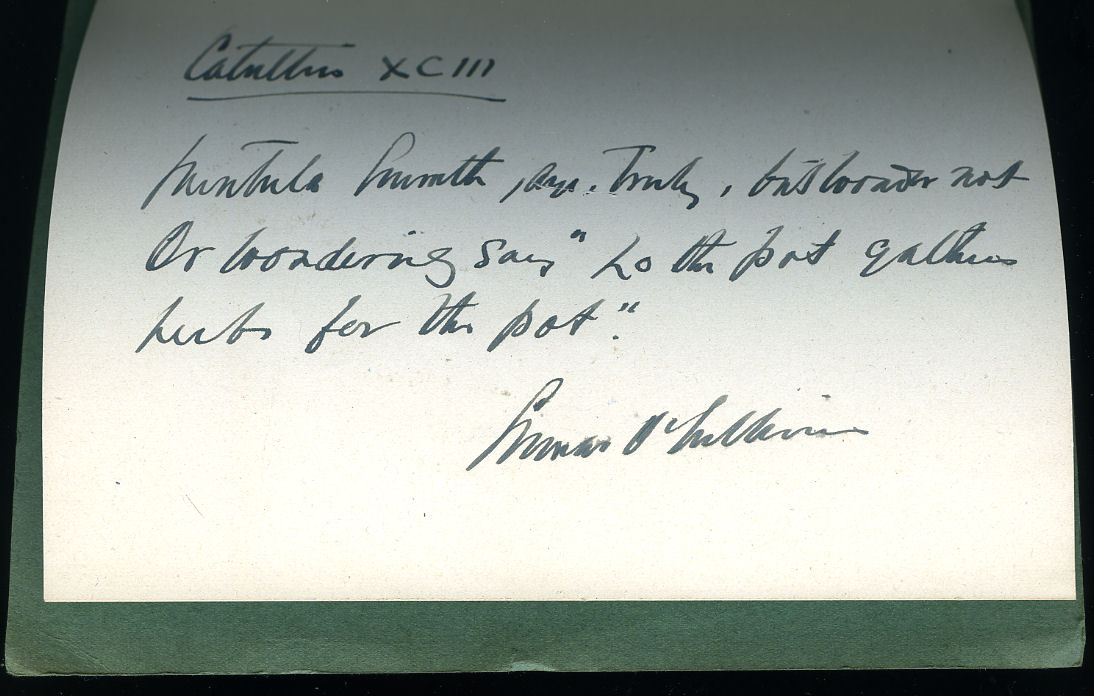 Catullus XCIII
Mentula aye. Truly, but wonder not
Or wondering say "Lo the pot gathers
herbs for the pot."
Seumas O'Sullivan